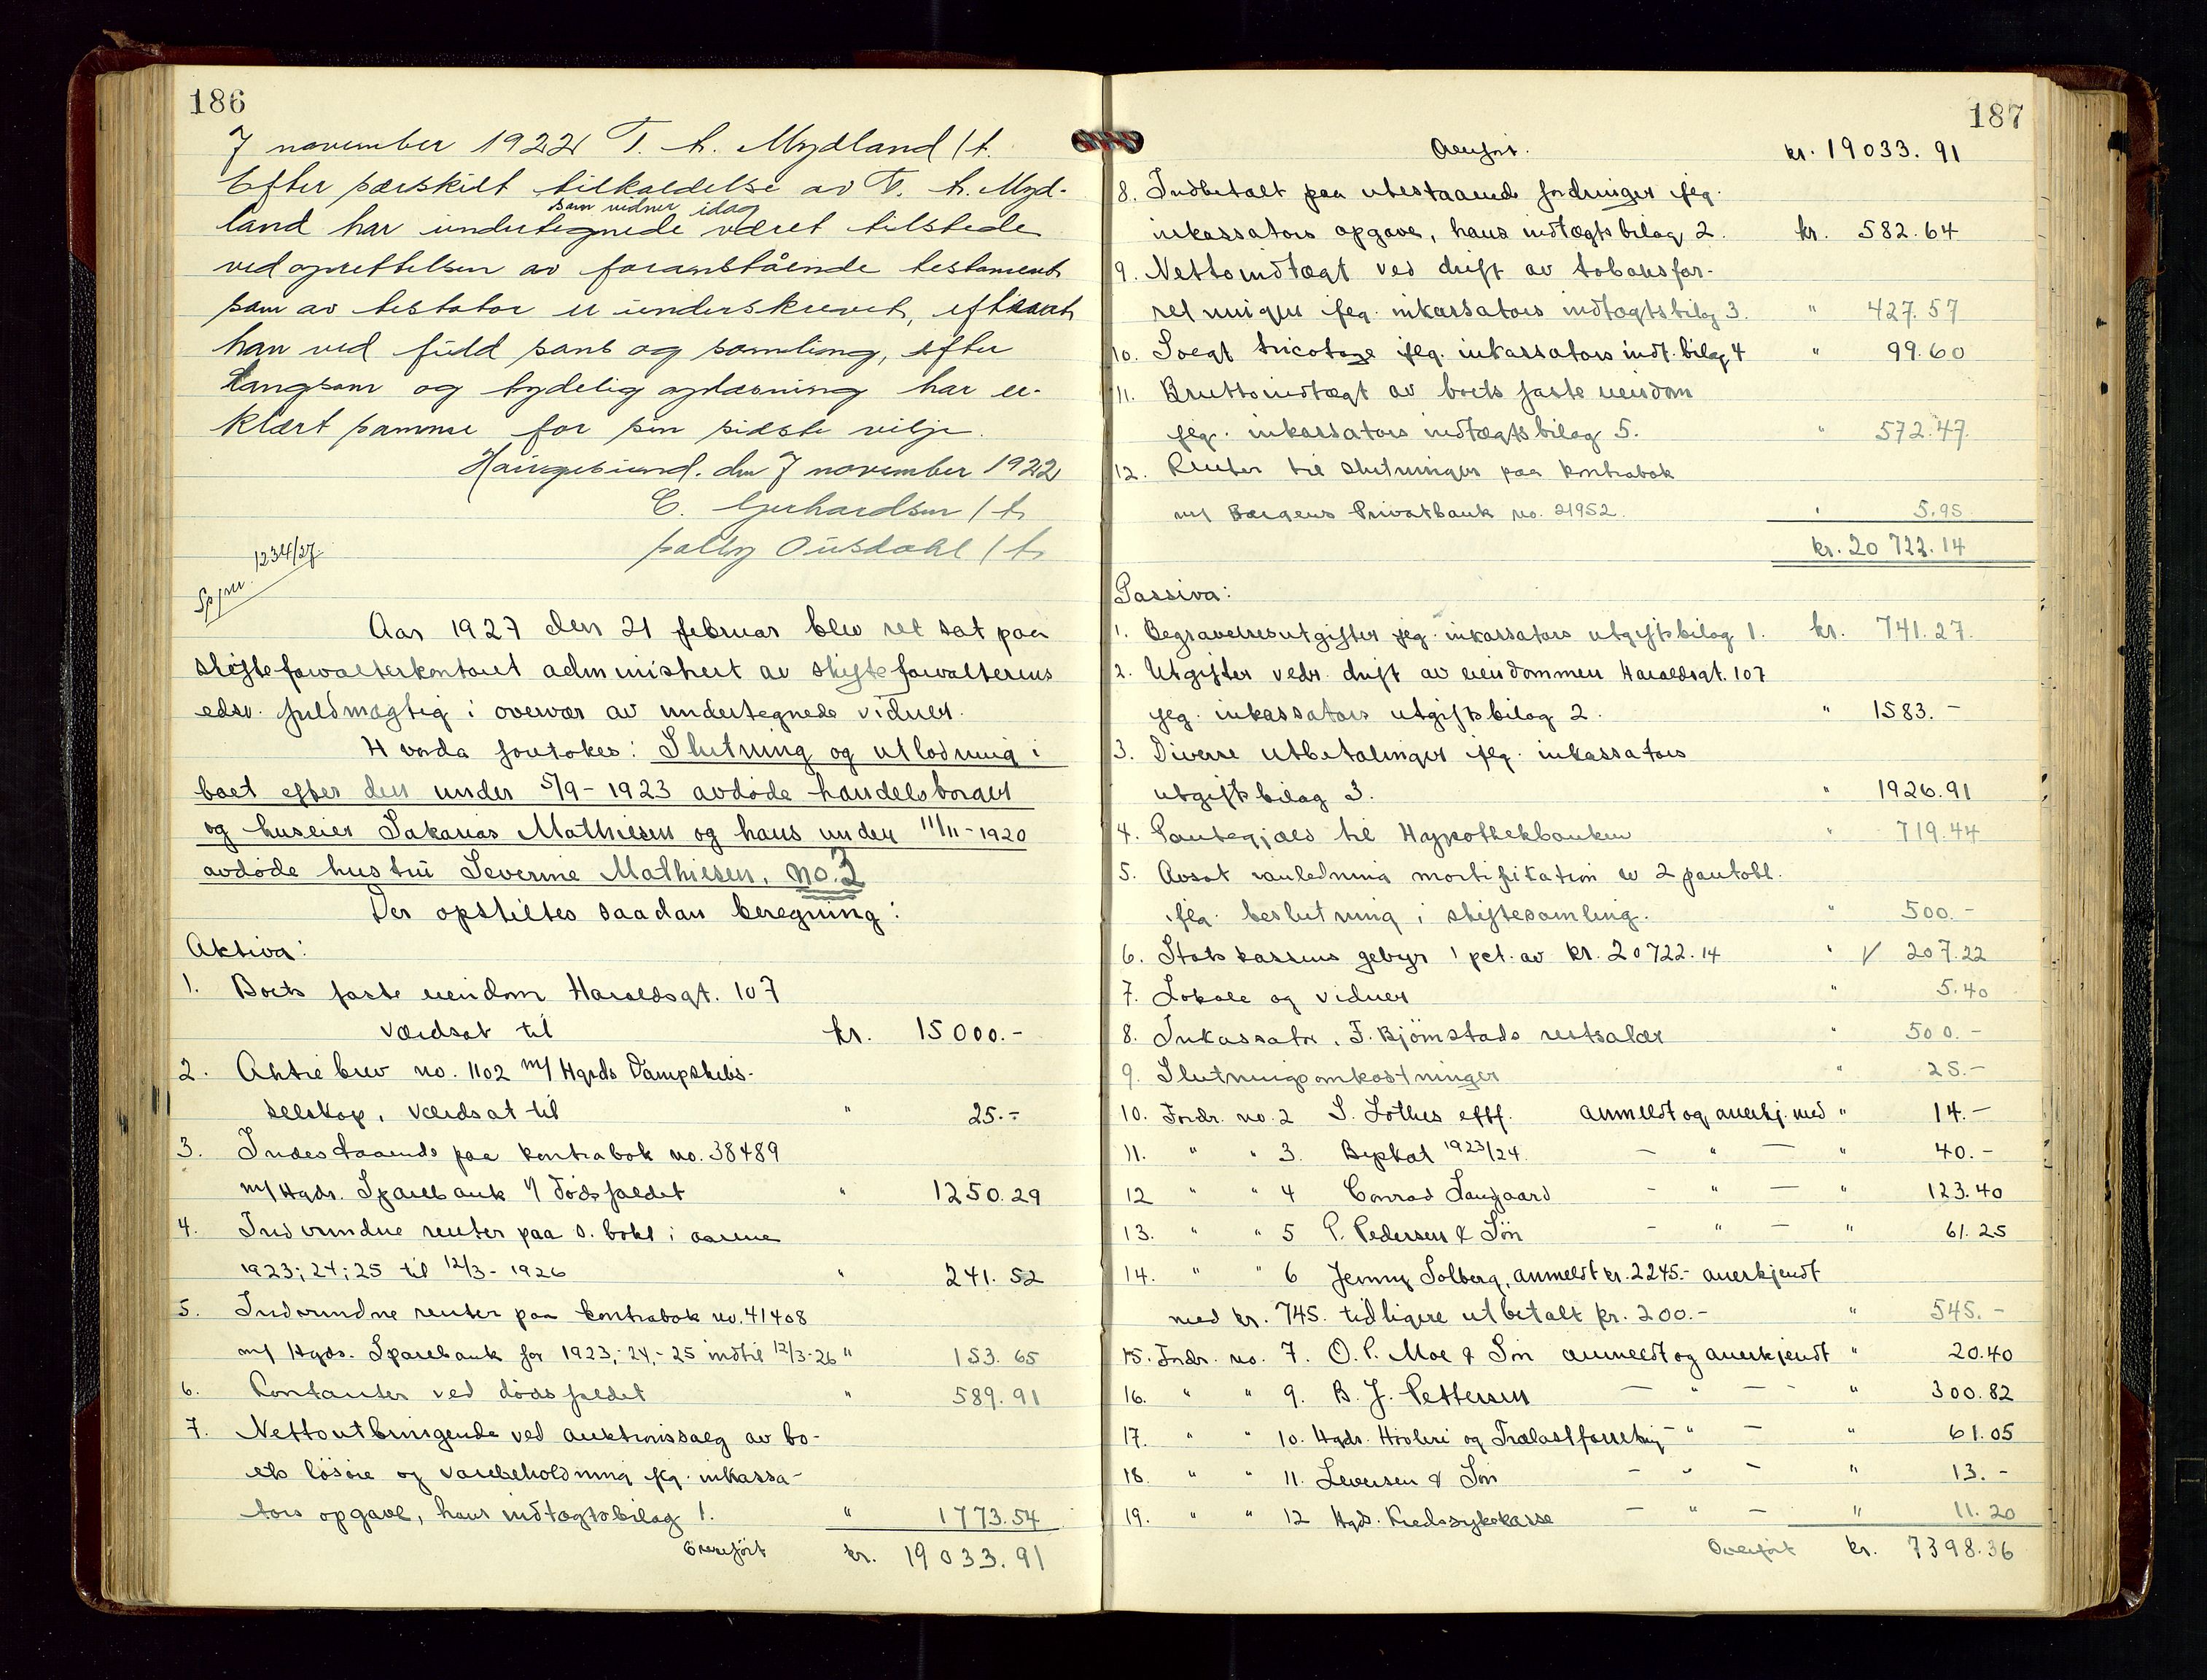 186
7 november 1922 T. h. Mydland /t.
Efter særskilt tilkaldelse av T. h. Myd-
som vidner idag
land har undertegnede været tilstede
ved oprettelsen av foranstående testament
som av testator er underskrevet, efterat
han ved fuld sans og samling, efter
langsom og tydelig oplæsning har er-
klært samme for sin sidste vilje.
Haugesund. den 7 november 1922
C. Gerhardsen /t.
Solby Ousdahl /t.
1234/27
Aar 1927 den 21 februar blev ret sat paa
skifteforvalterkontoret administrert av skifteforvalterens
edsv. fuldmægtig i overvær av undertegnede vidner.
Hvorda foretokes: Slutning og utlodning i
boet efter den under 5/9-1923 avdøde handelsborger
og huseier Sakarias Mathiesen og hans under 11/11-1920
avdøde hustru Severine Mathiesen. no. 3
Der opstiltes saadan beregning:
Aktiva:
1. Boets faste eiendom Haraldsgt. 107
værdsat til kr. 15000.-
2. Aktiebrev no. 1102 m/ Hgsds Dampskibs-
selskap, værdsat til " 25.-
3. Indestaaende paa kontrabok no. 38489
m/ Hgds. Sparebank v/ dødsfaldet " 1250.29
4. Indvundne renter paa s. bok i aarene
1923; 24; 25 til 12/3-1926 " 241.52
5. Indvundne renter paa kontrabok no. 41408
m/ Hgds. Sparebank for 1923,-24,-25 indtil 12/3-26 " 153.65
6. Kontanter ved dødsfaldet " 589.91
7. Nettoutbringende ved auktionssalg av bo-
ets løsøre og varebeholdning flg. inkassa-
tors opgave, hans indtægtsbilag 1. " 1773.54
Overført kr. 19033.91
187
Overført. kr. 19033.91
8. Indbetalt paa utestaaende fordringer iflg.
inkassators opgave, hans indtægtsbilag 2. kr. 582.64
9. Nettoindtægt ved drift av tobaksfor-
retningen iflg. inkassators indtægtsbilag 3. " 427.57
10. Solgt tricotage iflg. inkassators indt. bilag 4 " 99.60
11. Bruttoindtægt av boets faste eiendom
iflg. inkassators indtægtsbilag 5. " 572.47
12. Renter til slutningen paa kontrabok
m/ Bergens Privatbank no. 21952. " 5.95
kr. 20722.14
Passiva:
1. Begravelsesutgifter iflg. inkassators utgiftsbilag 1. kr. 741.27.
2. Utgifter vedr. drift av eiendommen Haraldsgt. 107
iflg. inkassators utgiftsbilag 2. " 1583.-
3. Diverse utbetalinger iflg. inkassators
utgiftsbilag 3. " 1926.91
4. Pantegjæld til Hypothekbanken " 719.44
5. Avsat i anledning mortifikation av 2 pantobl.
iflg. beslutning i skiftesamling. " 500.-
6. Statskassens gebyr 1 pct. av kr. 20722.14 " √ 207.22
7. Lokale og vidner " 5.40
8. Inkassator. F. Bjørnstads restsalær " 500.-
9. Slutningsomkostninger " 25.-
10. Fordr. no. 2 S. Lothes eftf. anmeldt og anerkj. med " 14.-
11. " " 3. Bykat 1923/24. - " - " 40.-
12 " " 4 Conrad Langaard - " - " 123.40
13. " " 5 P. Pedersen & Søn - " - " 61.25
14. " " 6 Jenny Solberg, anmeldt kr. 2245.- anerkjendt
med kr. 745. tidligere utbetalt kr. 200.- " 545.-
15. Fordr. no. 7. O. P. Moe & Søn anmeldt og anerkjendt " 20.40
16. " " 9. B. J. Pettersen - " - " 300.82
17. " " 10. Hgds. Høvleri og Trælastforretning - " - " 61.05
18. " " 11. Leversen & Søn - " - " 13.-
19. " " 12 Hgds. Kredssykekasse - " - " 11.20
Overført kr. 7398.36